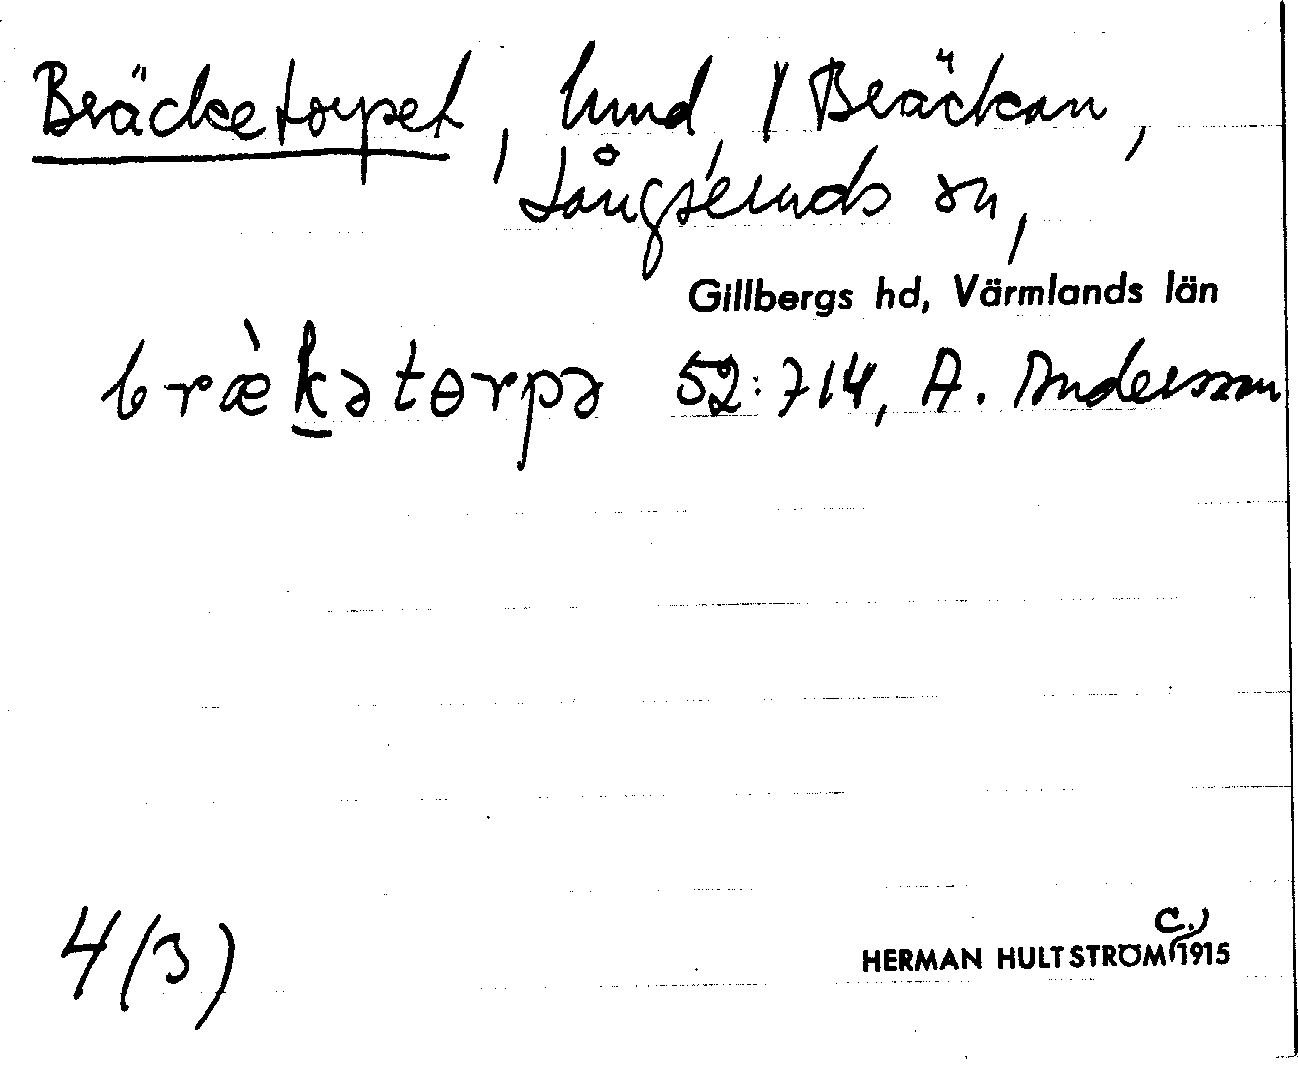 Bräcketorpet, lund, / Bräckan,
Långseruds sn,
Gillbergs hd, Värmlands län
bræ̀k̲ətɵrpə 52:714, A. Andersson
4 (3)
HERMAN HULTSTRÖM (c.) 1915